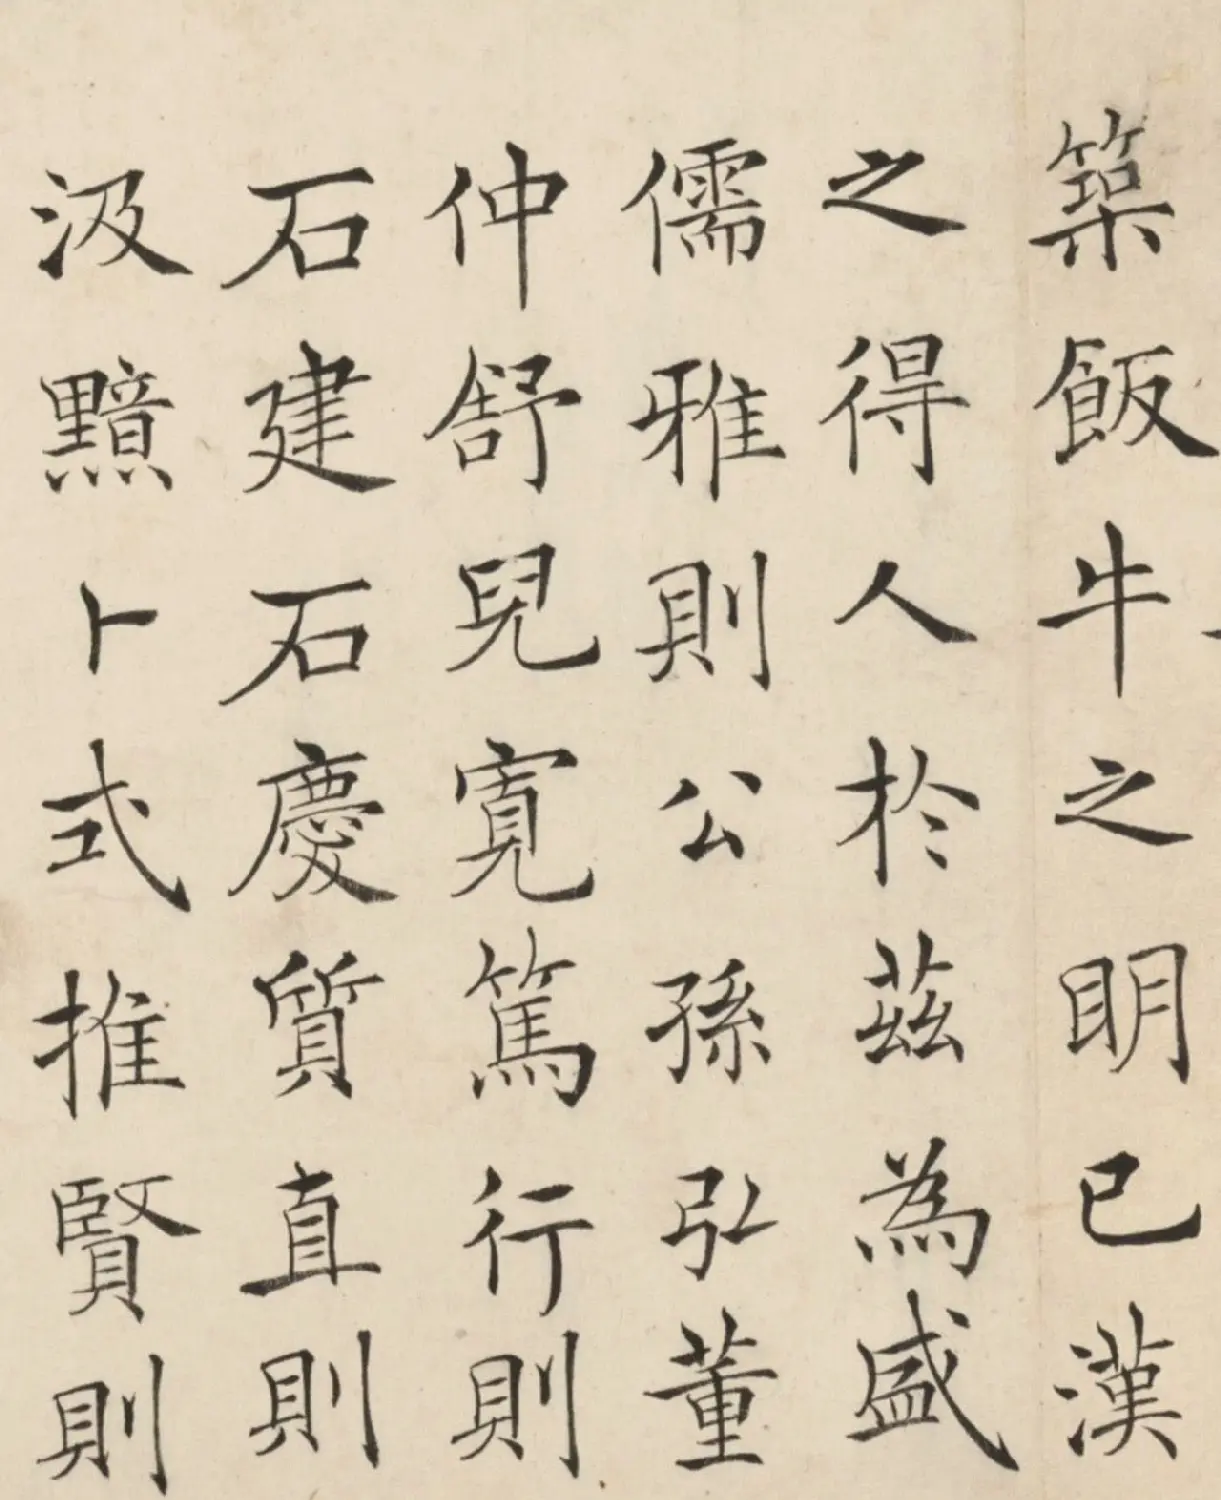 築飯牛之明已漢
之得人於茲為盛
儒雅則公孫弘董
仲舒兒寬篤行則
石建石慶質直則
汲黯卜式推賢則